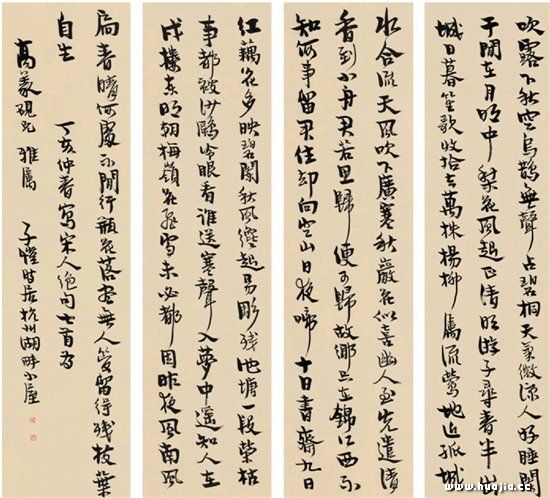 吹露下秋空烏鵲無聲占碧桐天氣微涼人好睡闌
干閒在月明中梨花風起正清明游子尋春半出
城日暮笙歌收拾去萬株楊柳屬流鶯地近孤城
水合流天風吹下廣寒秋巖花似喜幽人至先遣清
香到小舟君若思歸便可歸故鄉只在錦江西不
知何事留君住却向空山日夜啼十日書齋九日
紅藕花多映碧闌秋風纔起易彫殘池塘一段榮枯
事都被沙鷗冷眼看誰送寒聲入夢中遙知人在
戍樓東明朝梅嶺花飛雪未必都因昨夜風南風
扃春晴何處不閒行瓶花落盡無人管留得殘枝葉
自生 丁亥仲春寫宋人絕句七首為
高硯兄 雅屬 子愷時居杭州湖畔小屋
www.huajia.cc